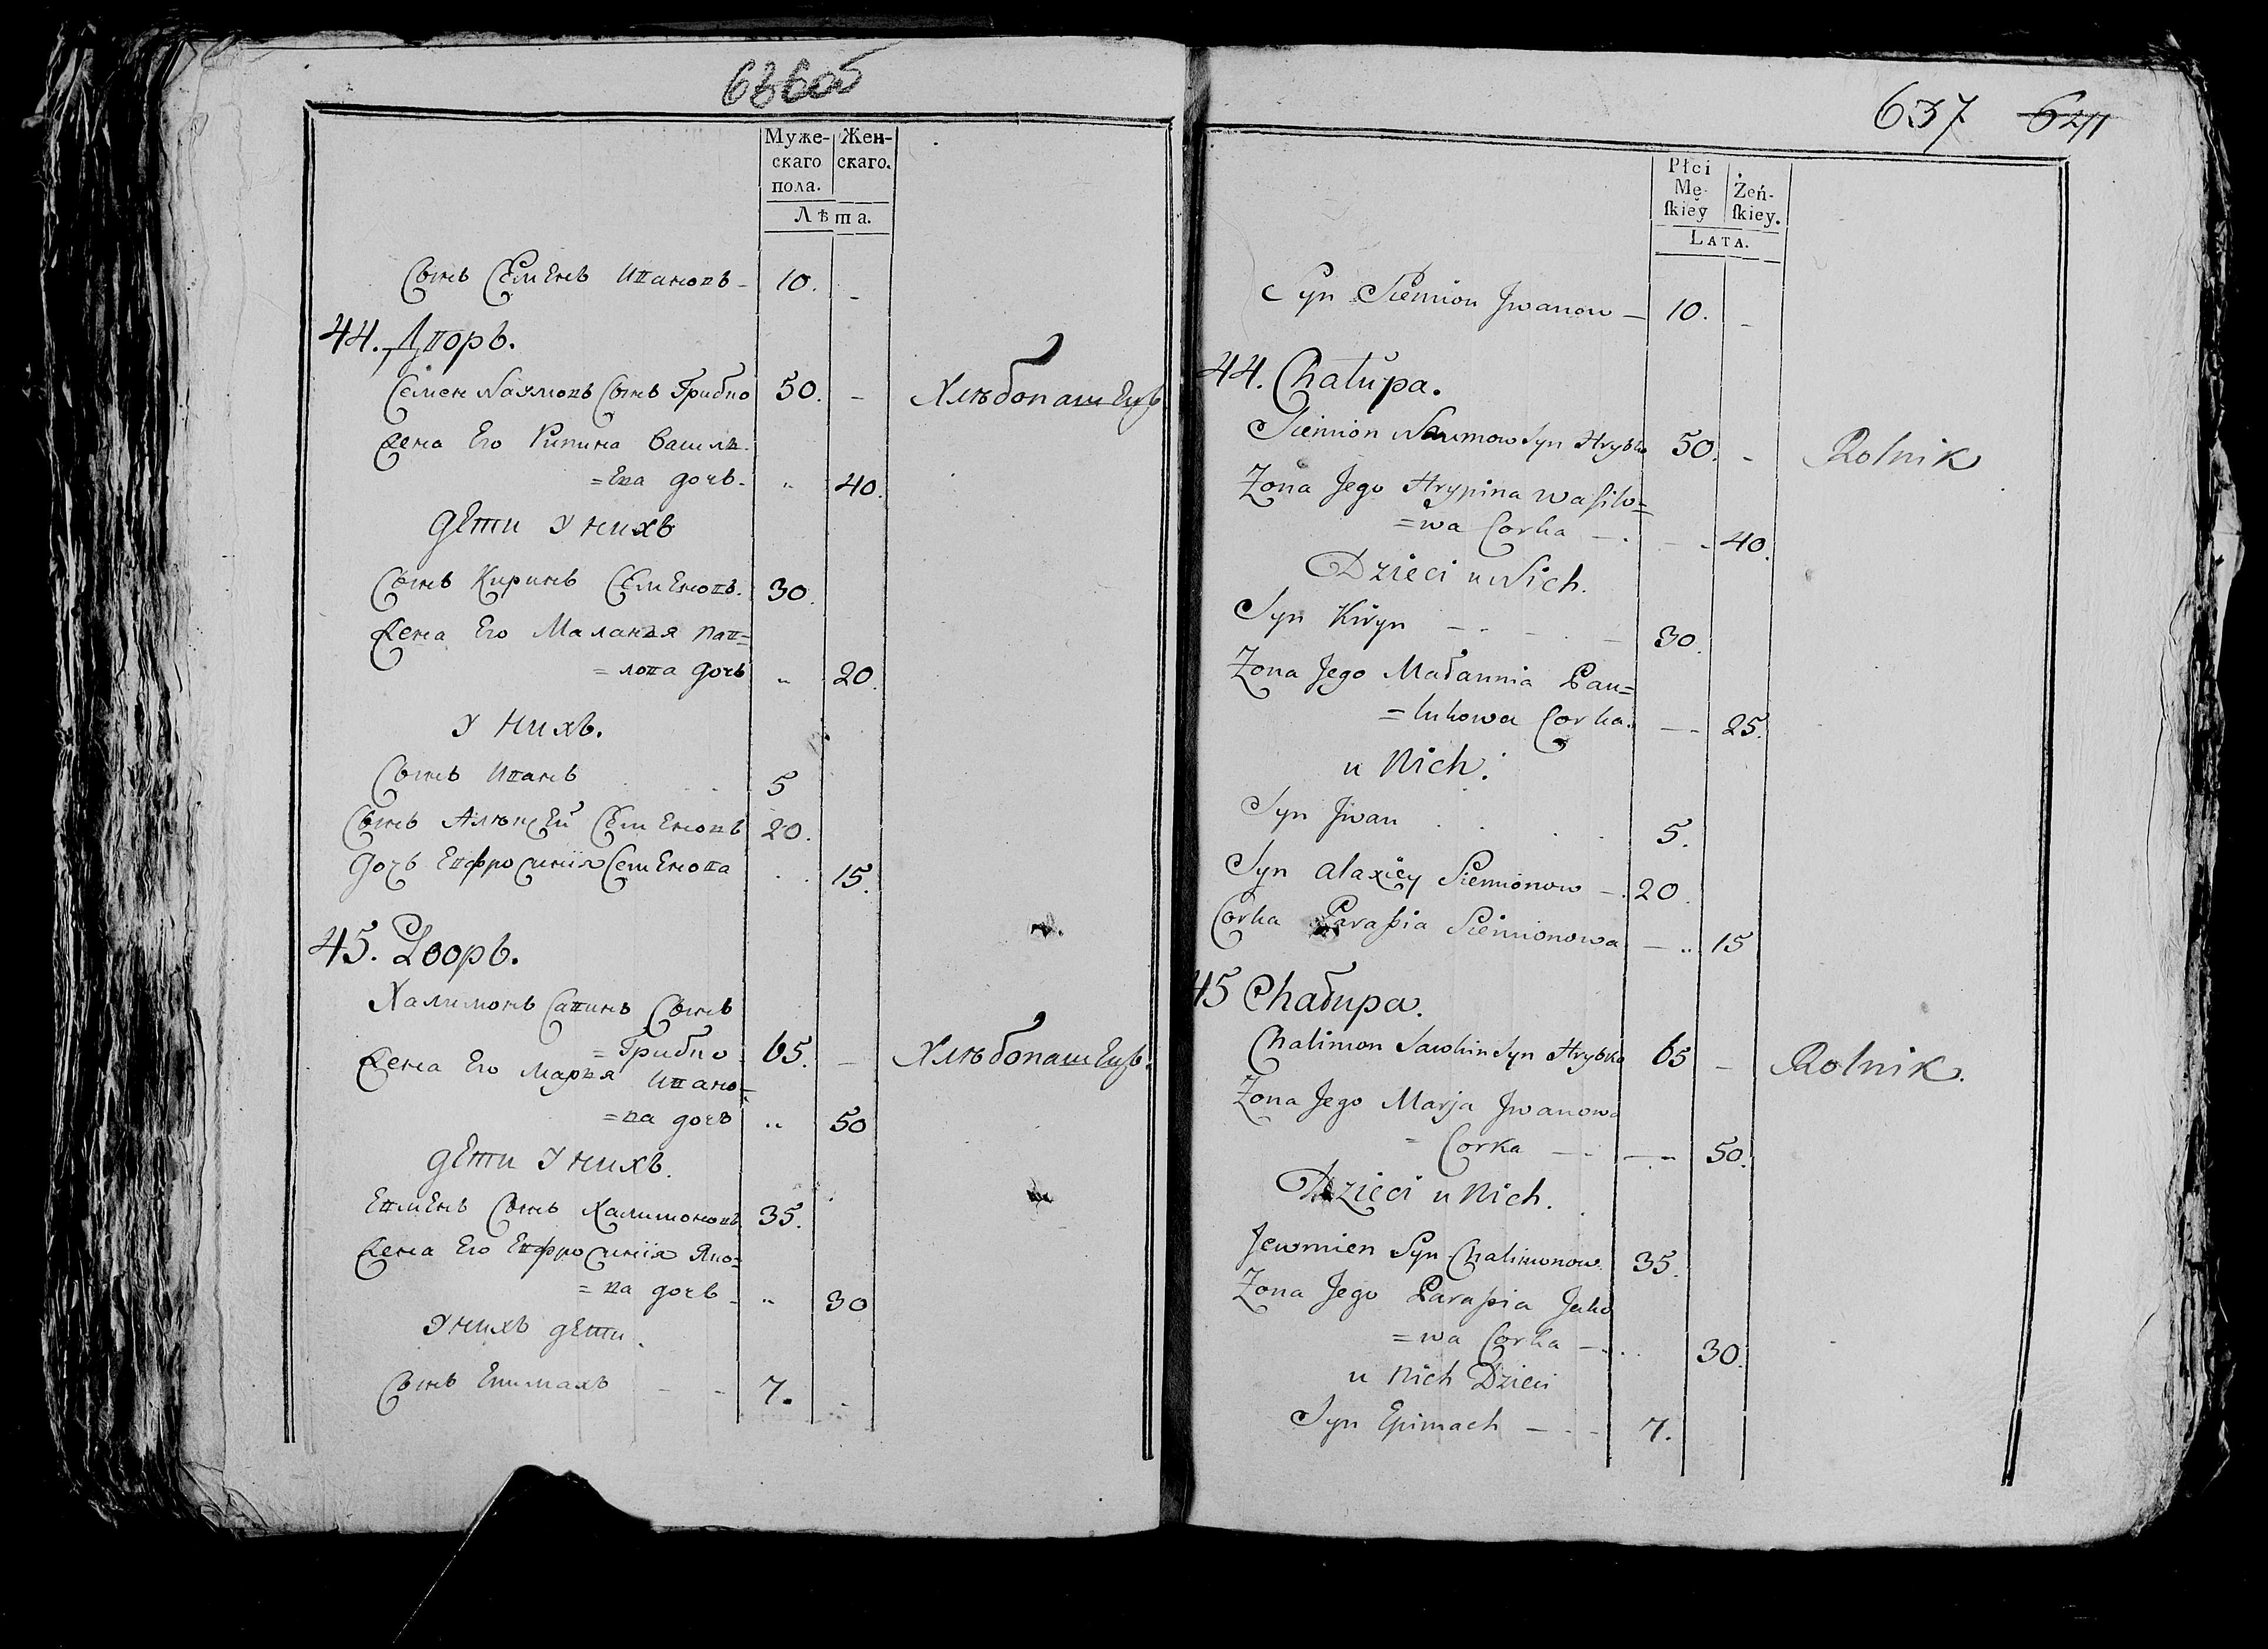 636об
Муже-
скаго
пола.
Жен-
скаго.
Лѣта.
Сынъ Семенъ Ивановъ - 10. -
44. Дворъ.
Семен Наумовъ Сынъ Грибко 50. - Хлѣбопашецъ
Жена Его Василь-
=ева дочь - " 40.
дети у нихъ
Сынъ Киринъ Семеновъ. 30.
Жена Его Маланья Пав-
=лова дочь " 20.
у нихъ.
Сынъ Иванъ 5
Сынъ Алѣксей Семеновъ 20.
дочь Евфросиния Семенова 15.
45. Дворъ.
Халимонъ Савинъ Сынъ
=Грибко 65. - Хлѣбопашецъ.
Жена Его Марья Ивано-
=ва дочь " 50
дети у нихъ.
Евменъ Сынъ Халимоновъ 35.
Жена Его Евфросиния Яко-
=ва дочь - " 30
у нихъ дети.
Сынъ Епимахъ - - 7. -
637 621
Płci
Mę-
ſkiey
Żeń-
ſkiey.
LATA.
Syn Siemion Jwanow - 10. -
44. Chałupa.
Siemion Naumow Syn Hrybko 50. - Rolnik
Żona Jego Hrypina Waſilo=
=wa Corka - . - - 40.
Dzieci u Nich.
Syn Kiryn - - - - 30.
Żona Jego Małannia Pau=
=lukowa Corka. - - 25.
u Nich.
Syn Jwan . . . . 5.
Syn Alaxiey Siemionow - . 20.
Corka Paraſzia Siemionowa - .. 15
45 Chałupa.
Chalimon Sawkin Syn Hrybko 65 - Rolnik.
Żona Jego Marja Jwanowa
= Corka - - - - 50.
Dzieci u Nich.
Jewmien Syn Chalimonow. 35.
Żona Jego Paraſzia Jako
=wa Corka - . . . 30.
u Nich Dzieci
Syn Epimach - - - 7.